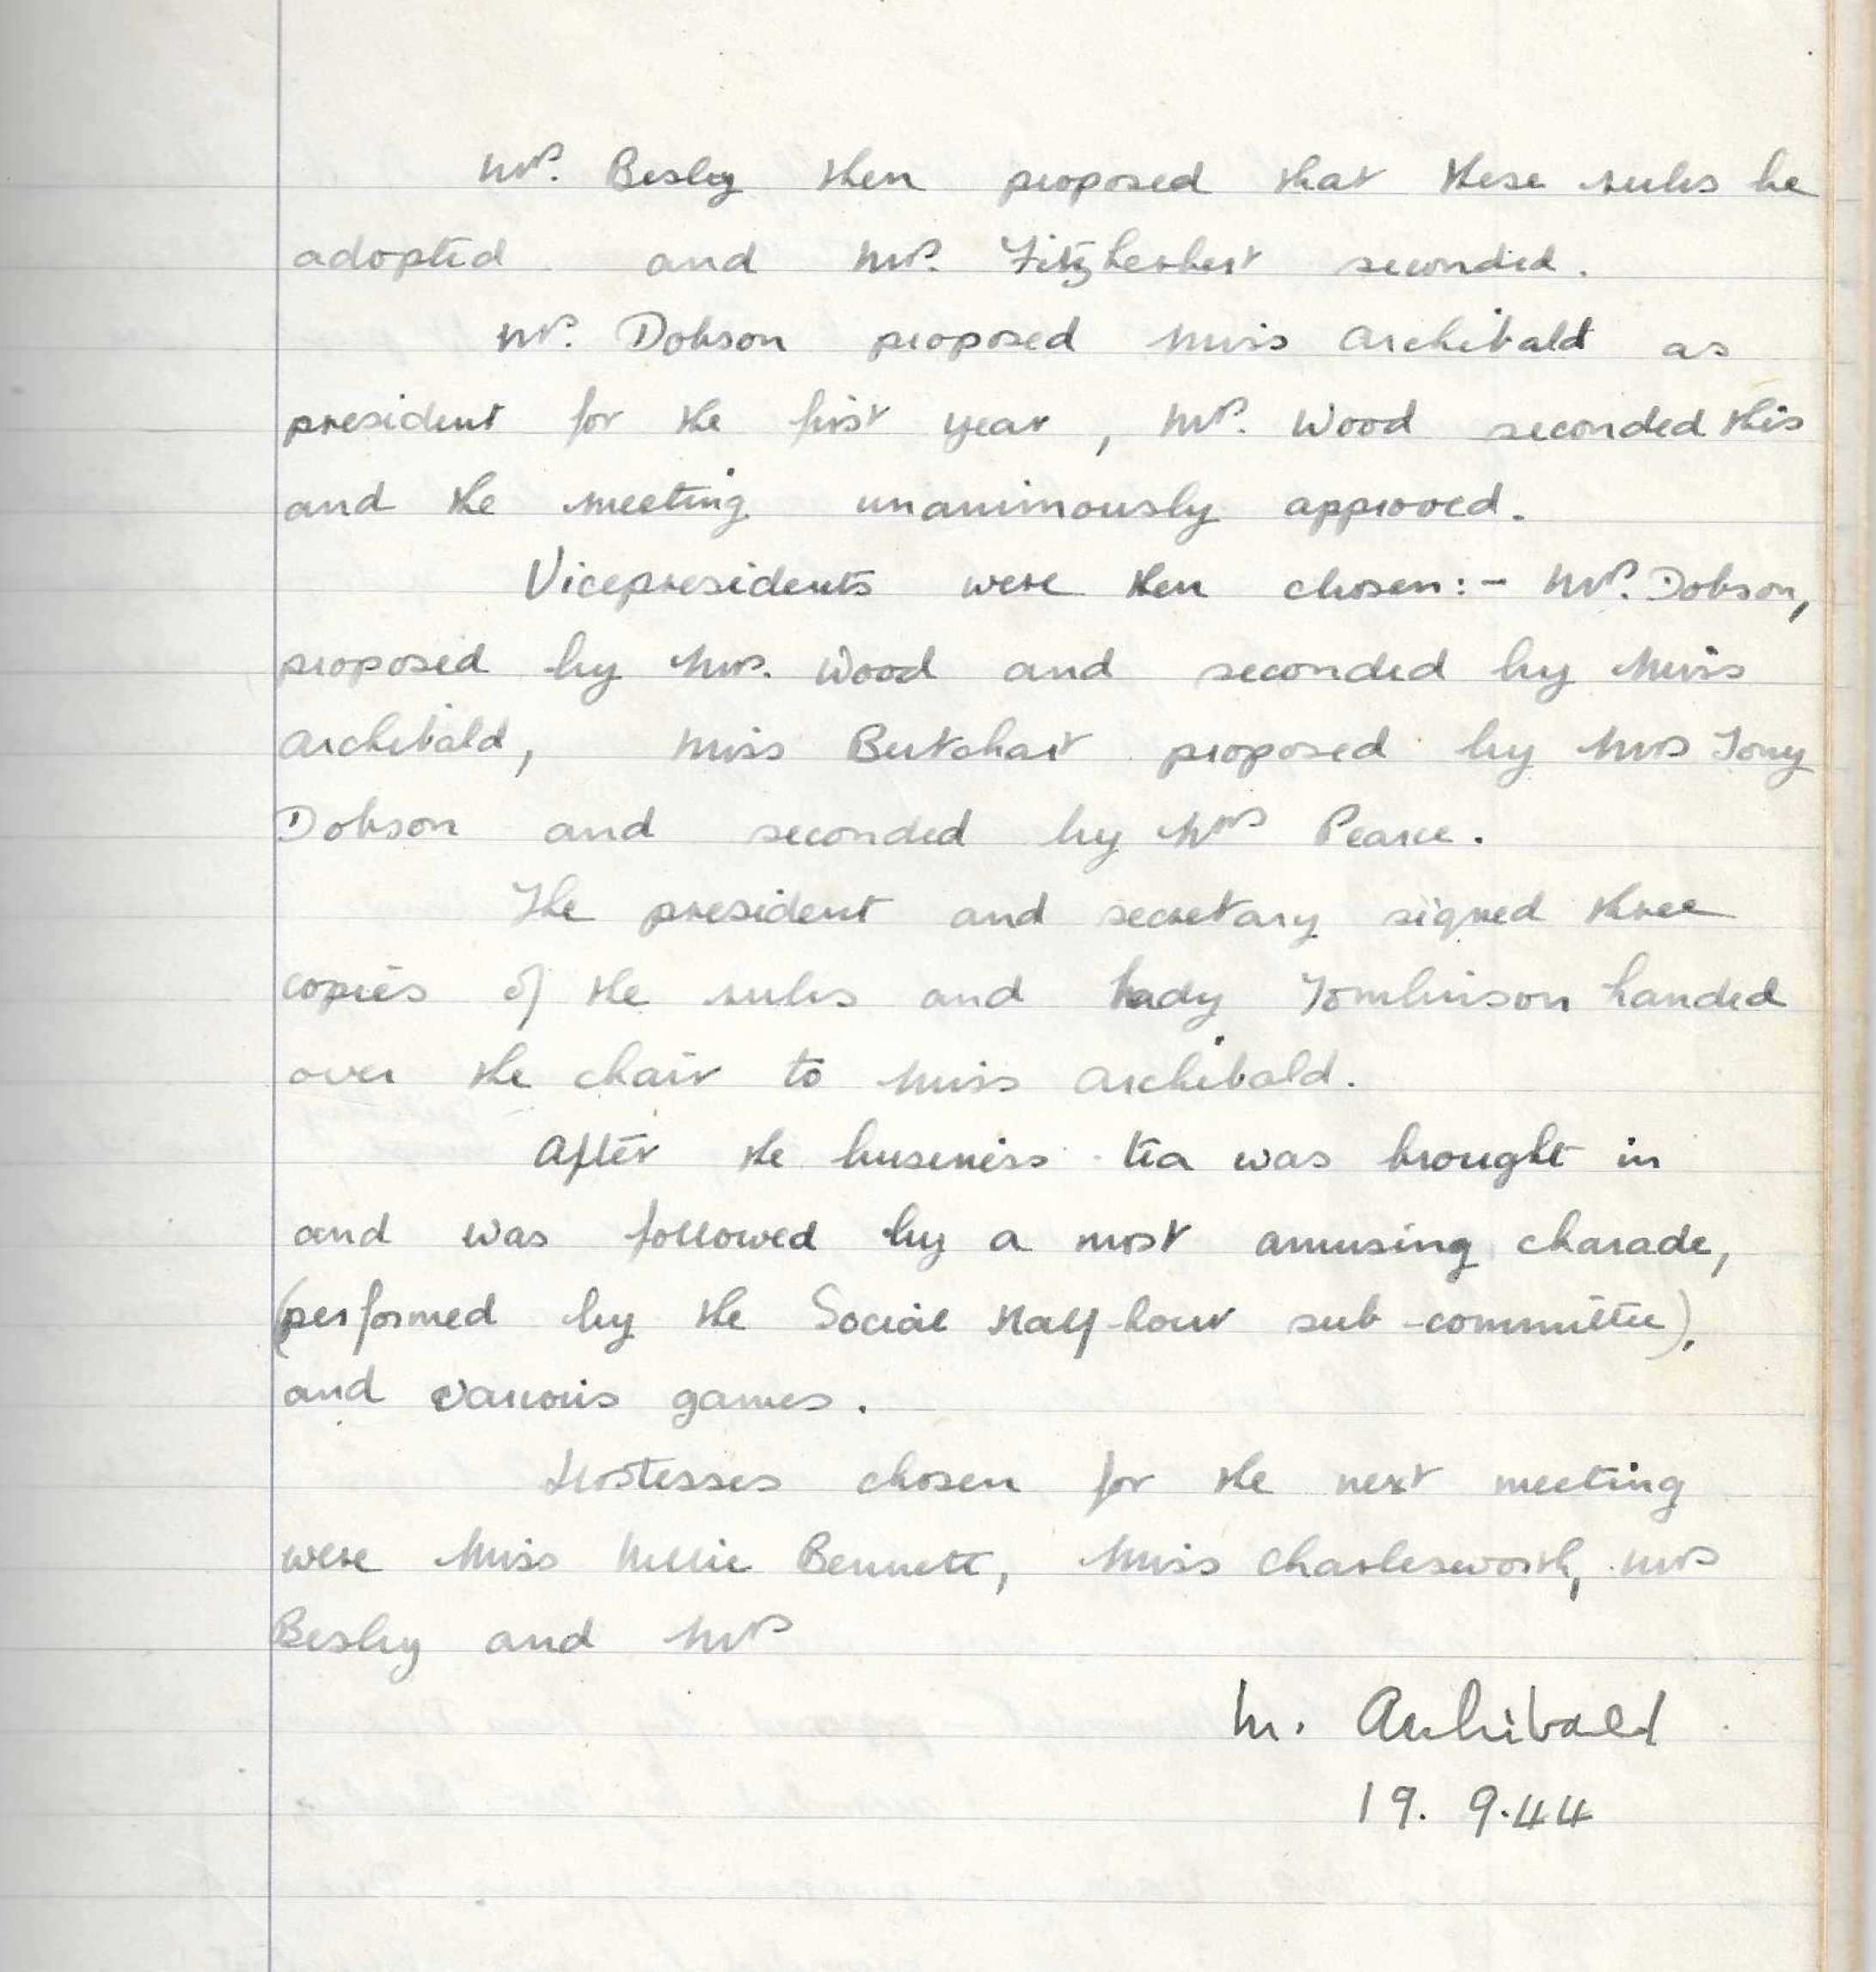 Mrs. Besley then proposed that these rules be
adopted and Mrs. Fitzherbert seconded.
Mrs. Dobson proposed Miss Archibald as
president for the first year, Mrs. Wood seconded this
and the meeting unanimously approved.
Vicepresidents were then chosen:- Mrs. Dobson,
proposed by Mrs. Wood and seconded by Miss
Archibald, Miss Butchart proposed by Mrs Tony
Dobson and seconded by Mrs Pearce.
The president and secretary signed three
copies of the rules and Lady Tomlinson handed
over the chair to Miss Archibald.
After the business tea was brought in
and was followed by a most amusing charade,
(performed by the Social Half-hour sub-committee),
and various games.
Hostesses chosen for the next meeting
were Miss Nellie Bennett, Miss Charlesworth, Mrs
Besley and Mrs
M. Archibald
19. 9.44